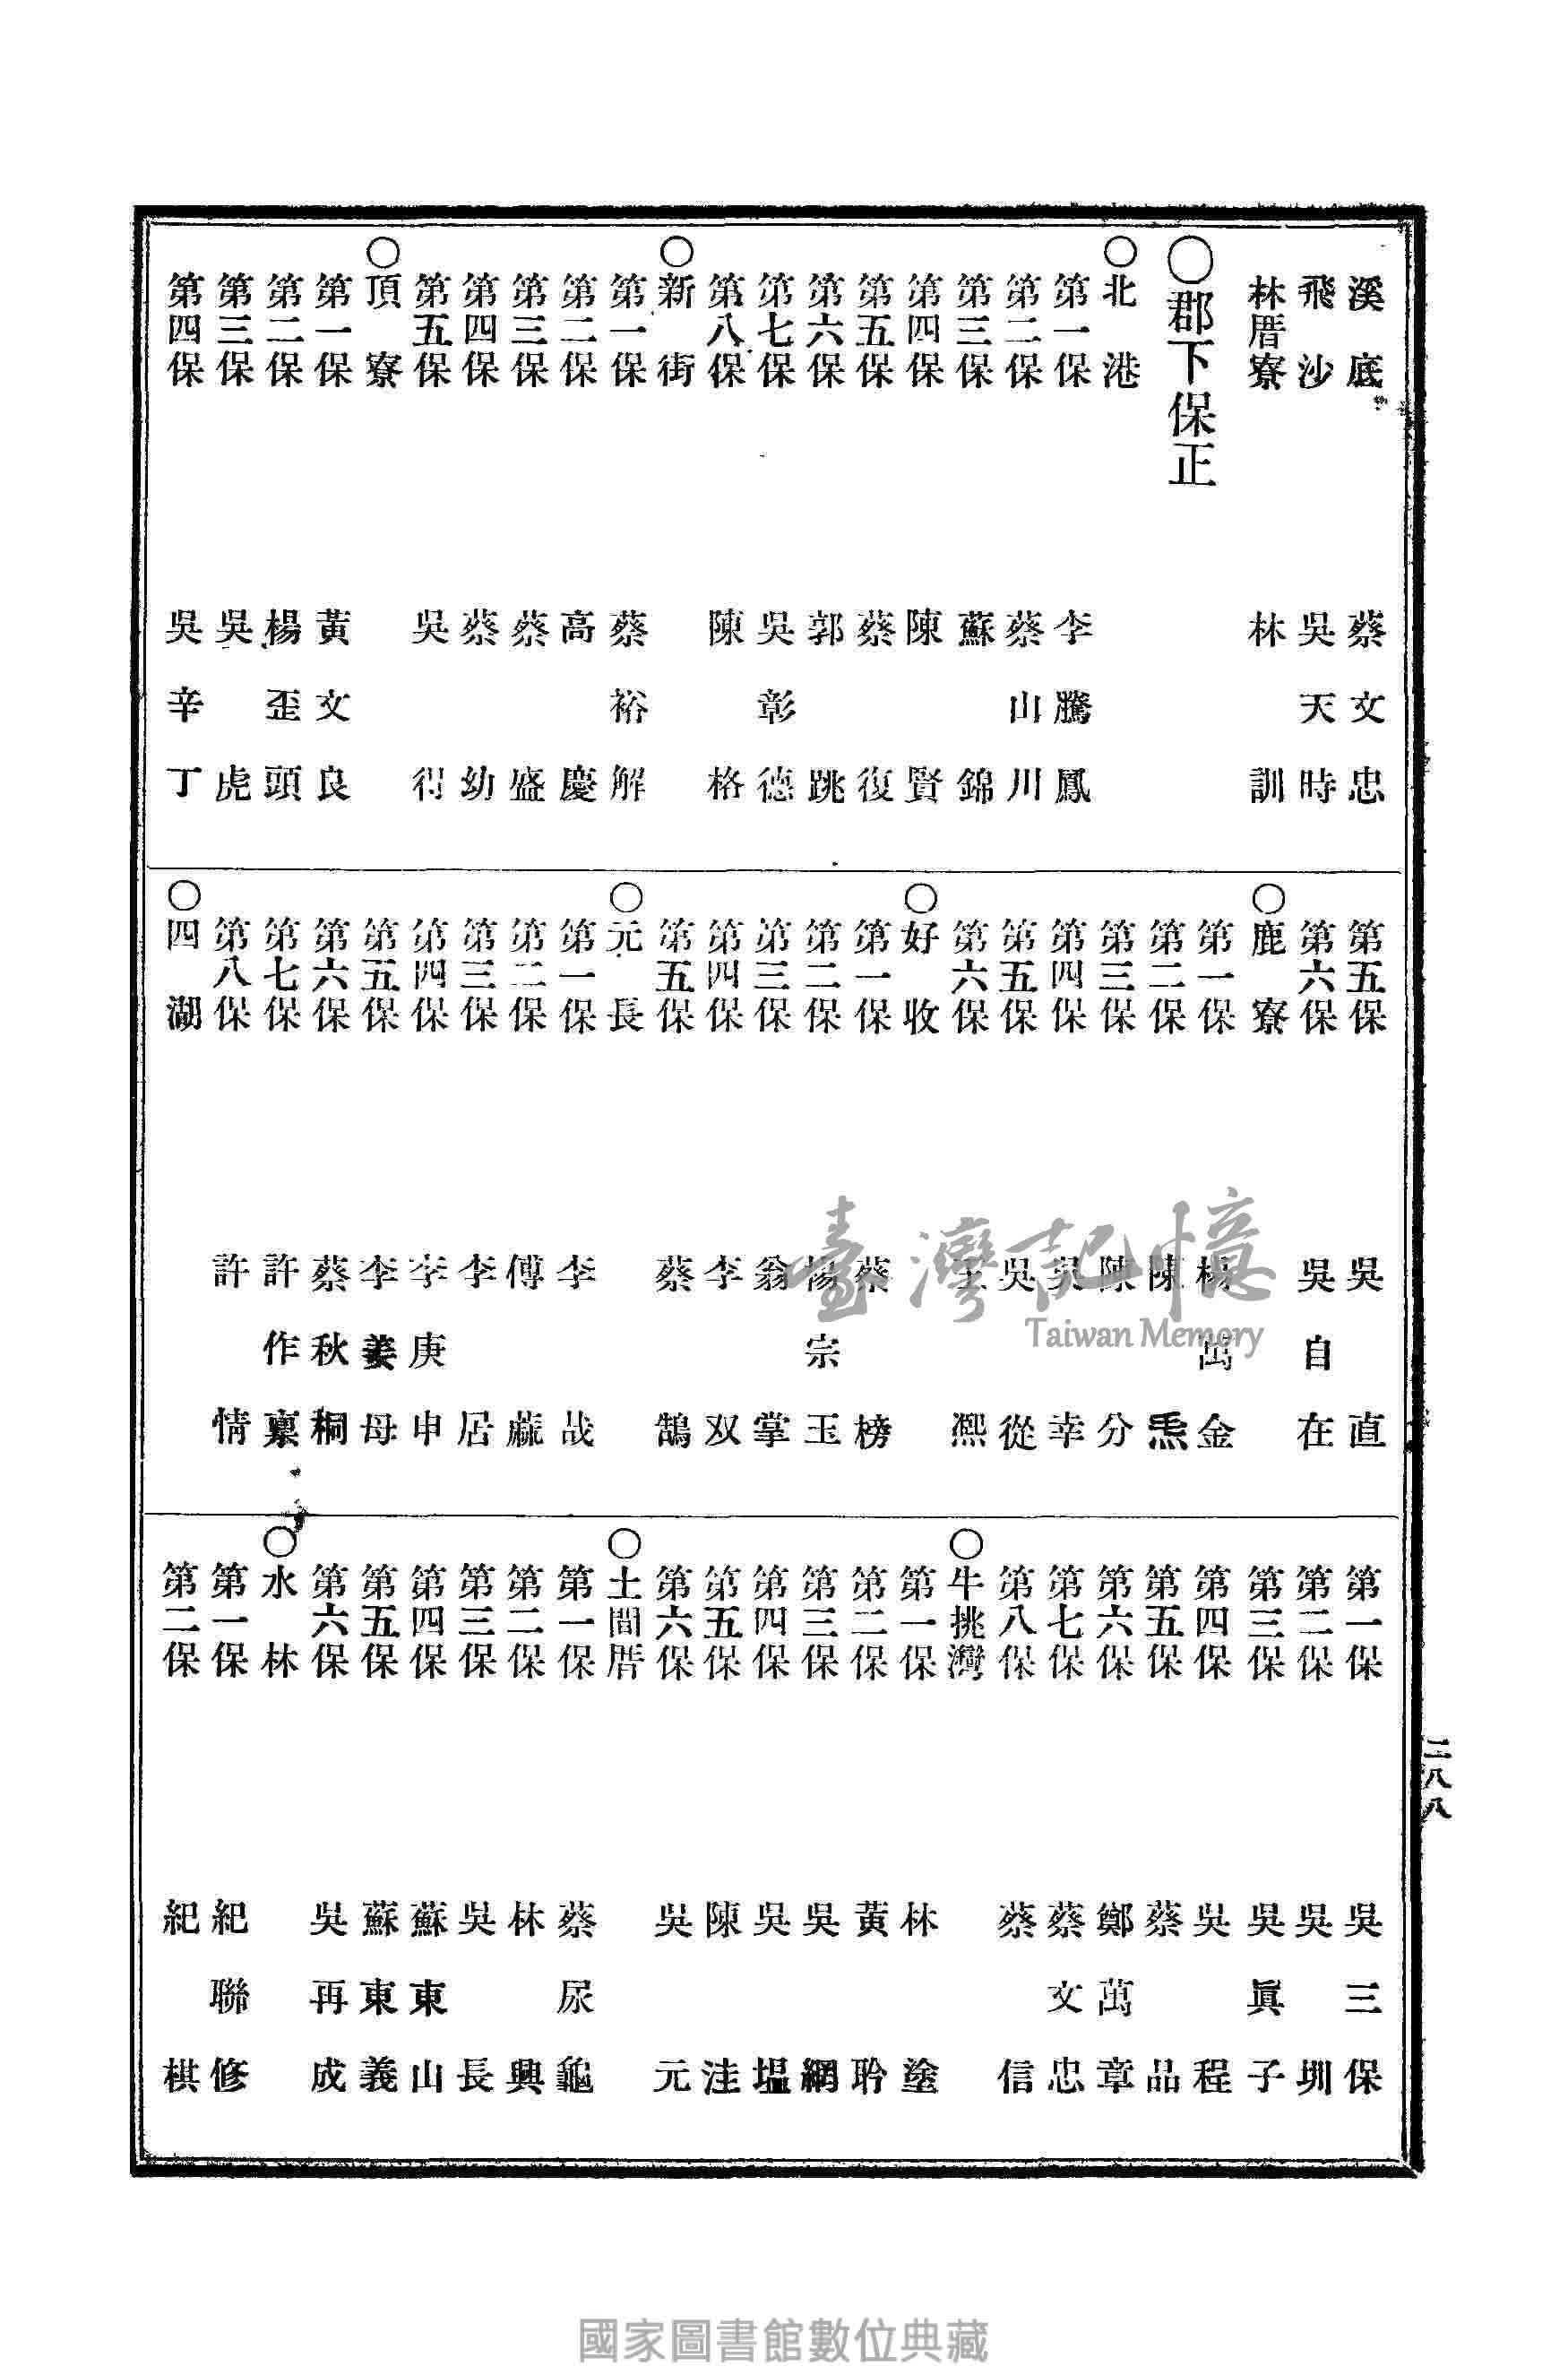 溪底 蔡文忠
飛沙 吳天時
林厝寮 林訓
○郡下保正
○北港
第一保 李騰鳳
第二保 蔡山川
第三保 蘇錦
第四保 陳賢
第五保 蔡復
第六保 郭跳
第七保 吳彰德
第八保 陳格
○新街
第一保 蔡裕解
第二保 高慶
第三保 蔡盛
第四保 蔡幼
第五保 吳得
○頂寮
第一保 黃文良
第二保 楊歪頭
第三保 吳虎
第四保 吳辛丁
第五保 吳直
第六保 吳自在
○鹿寮
第一保 楊萬金
第二保 陳炁
第三保 陳分
第四保 吳幸
第五保 吳從
第六保 王熙
○好收
第一保 蔡榜
第二保 楊宗玉
第三保 翁掌
第四保 李双
第五保 蔡鵠
○元長
第一保 李
第二保 傅
第三保 李居
第四保 李庚申
第五保 李姜母
第六保 蔡秋桐
第七保 許作稟
第八保 許情
○四湖
第一保 吳三保
第二保 吳圳
第三保 吳眞子
第四保 吳程
第五保 蔡品
第六保 鄭萬章
第七保 蔡文忠
第八保 蔡信
○牛挑灣
第一保 林塗
第二保 黃聆
第三保 吳網
第四保 吳塭
第五保 陳洼
第六保 吳元
○土間厝
第一保 蔡尿龜
第二保 林興
第三保 吳長
第四保 蘇東山
第五保 蘇東義
第六保 吳再成
○水林
第一保 紀聯修
第二保 紀棋
二八八
臺灣記憶
Taiwan Memory
國家圖書館數位典藏